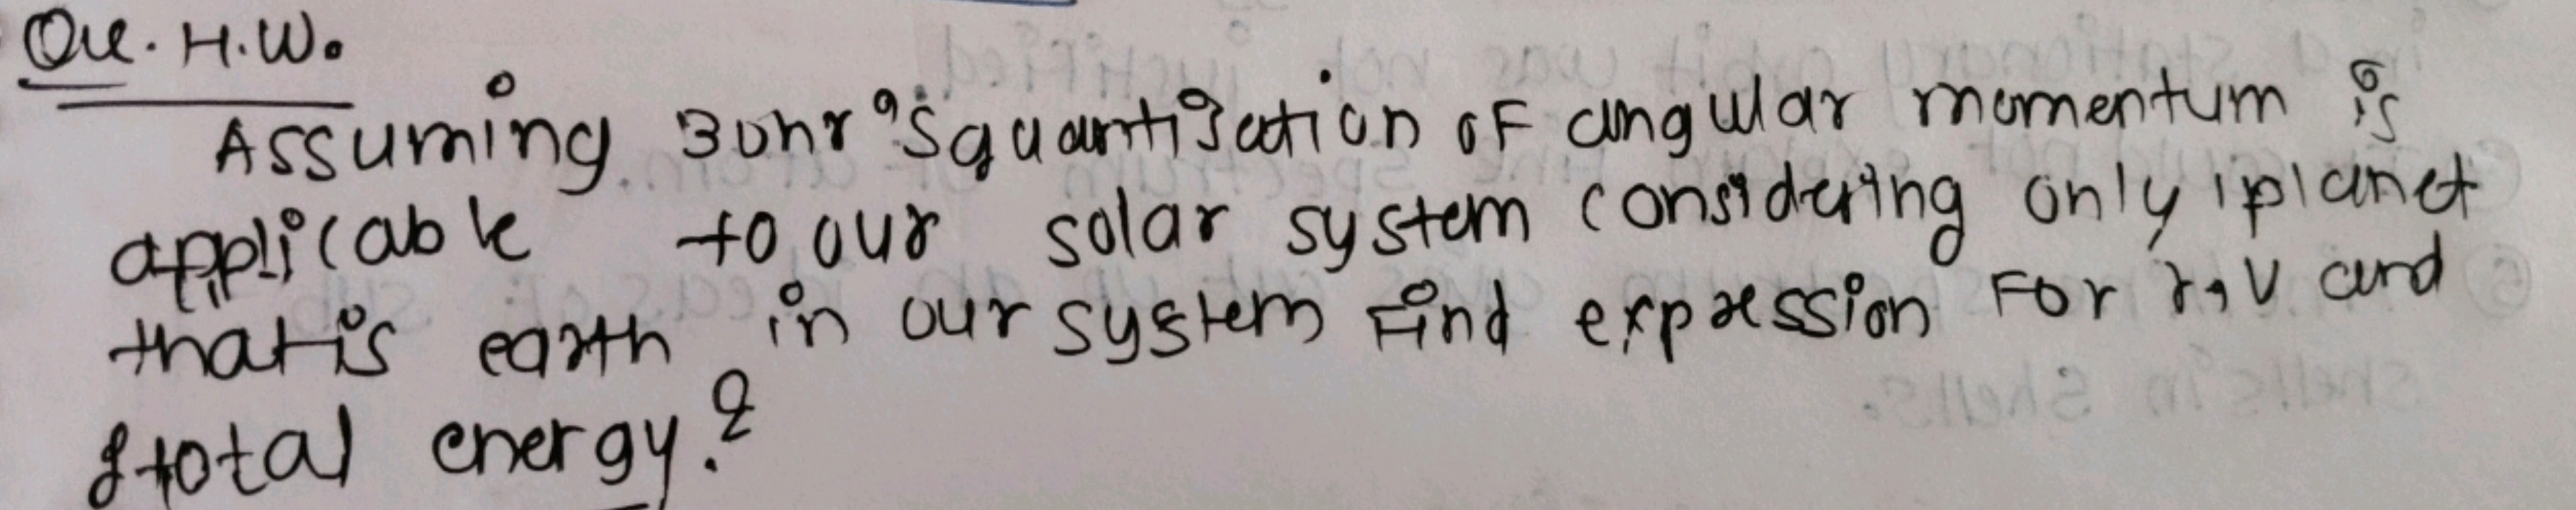 Que. H.W.
Assuming Bohr's quantisation of angular momentum is
applicable to our solar system considering only 1 planet
that is earth in our system Find expression For r, v and
total energy.?